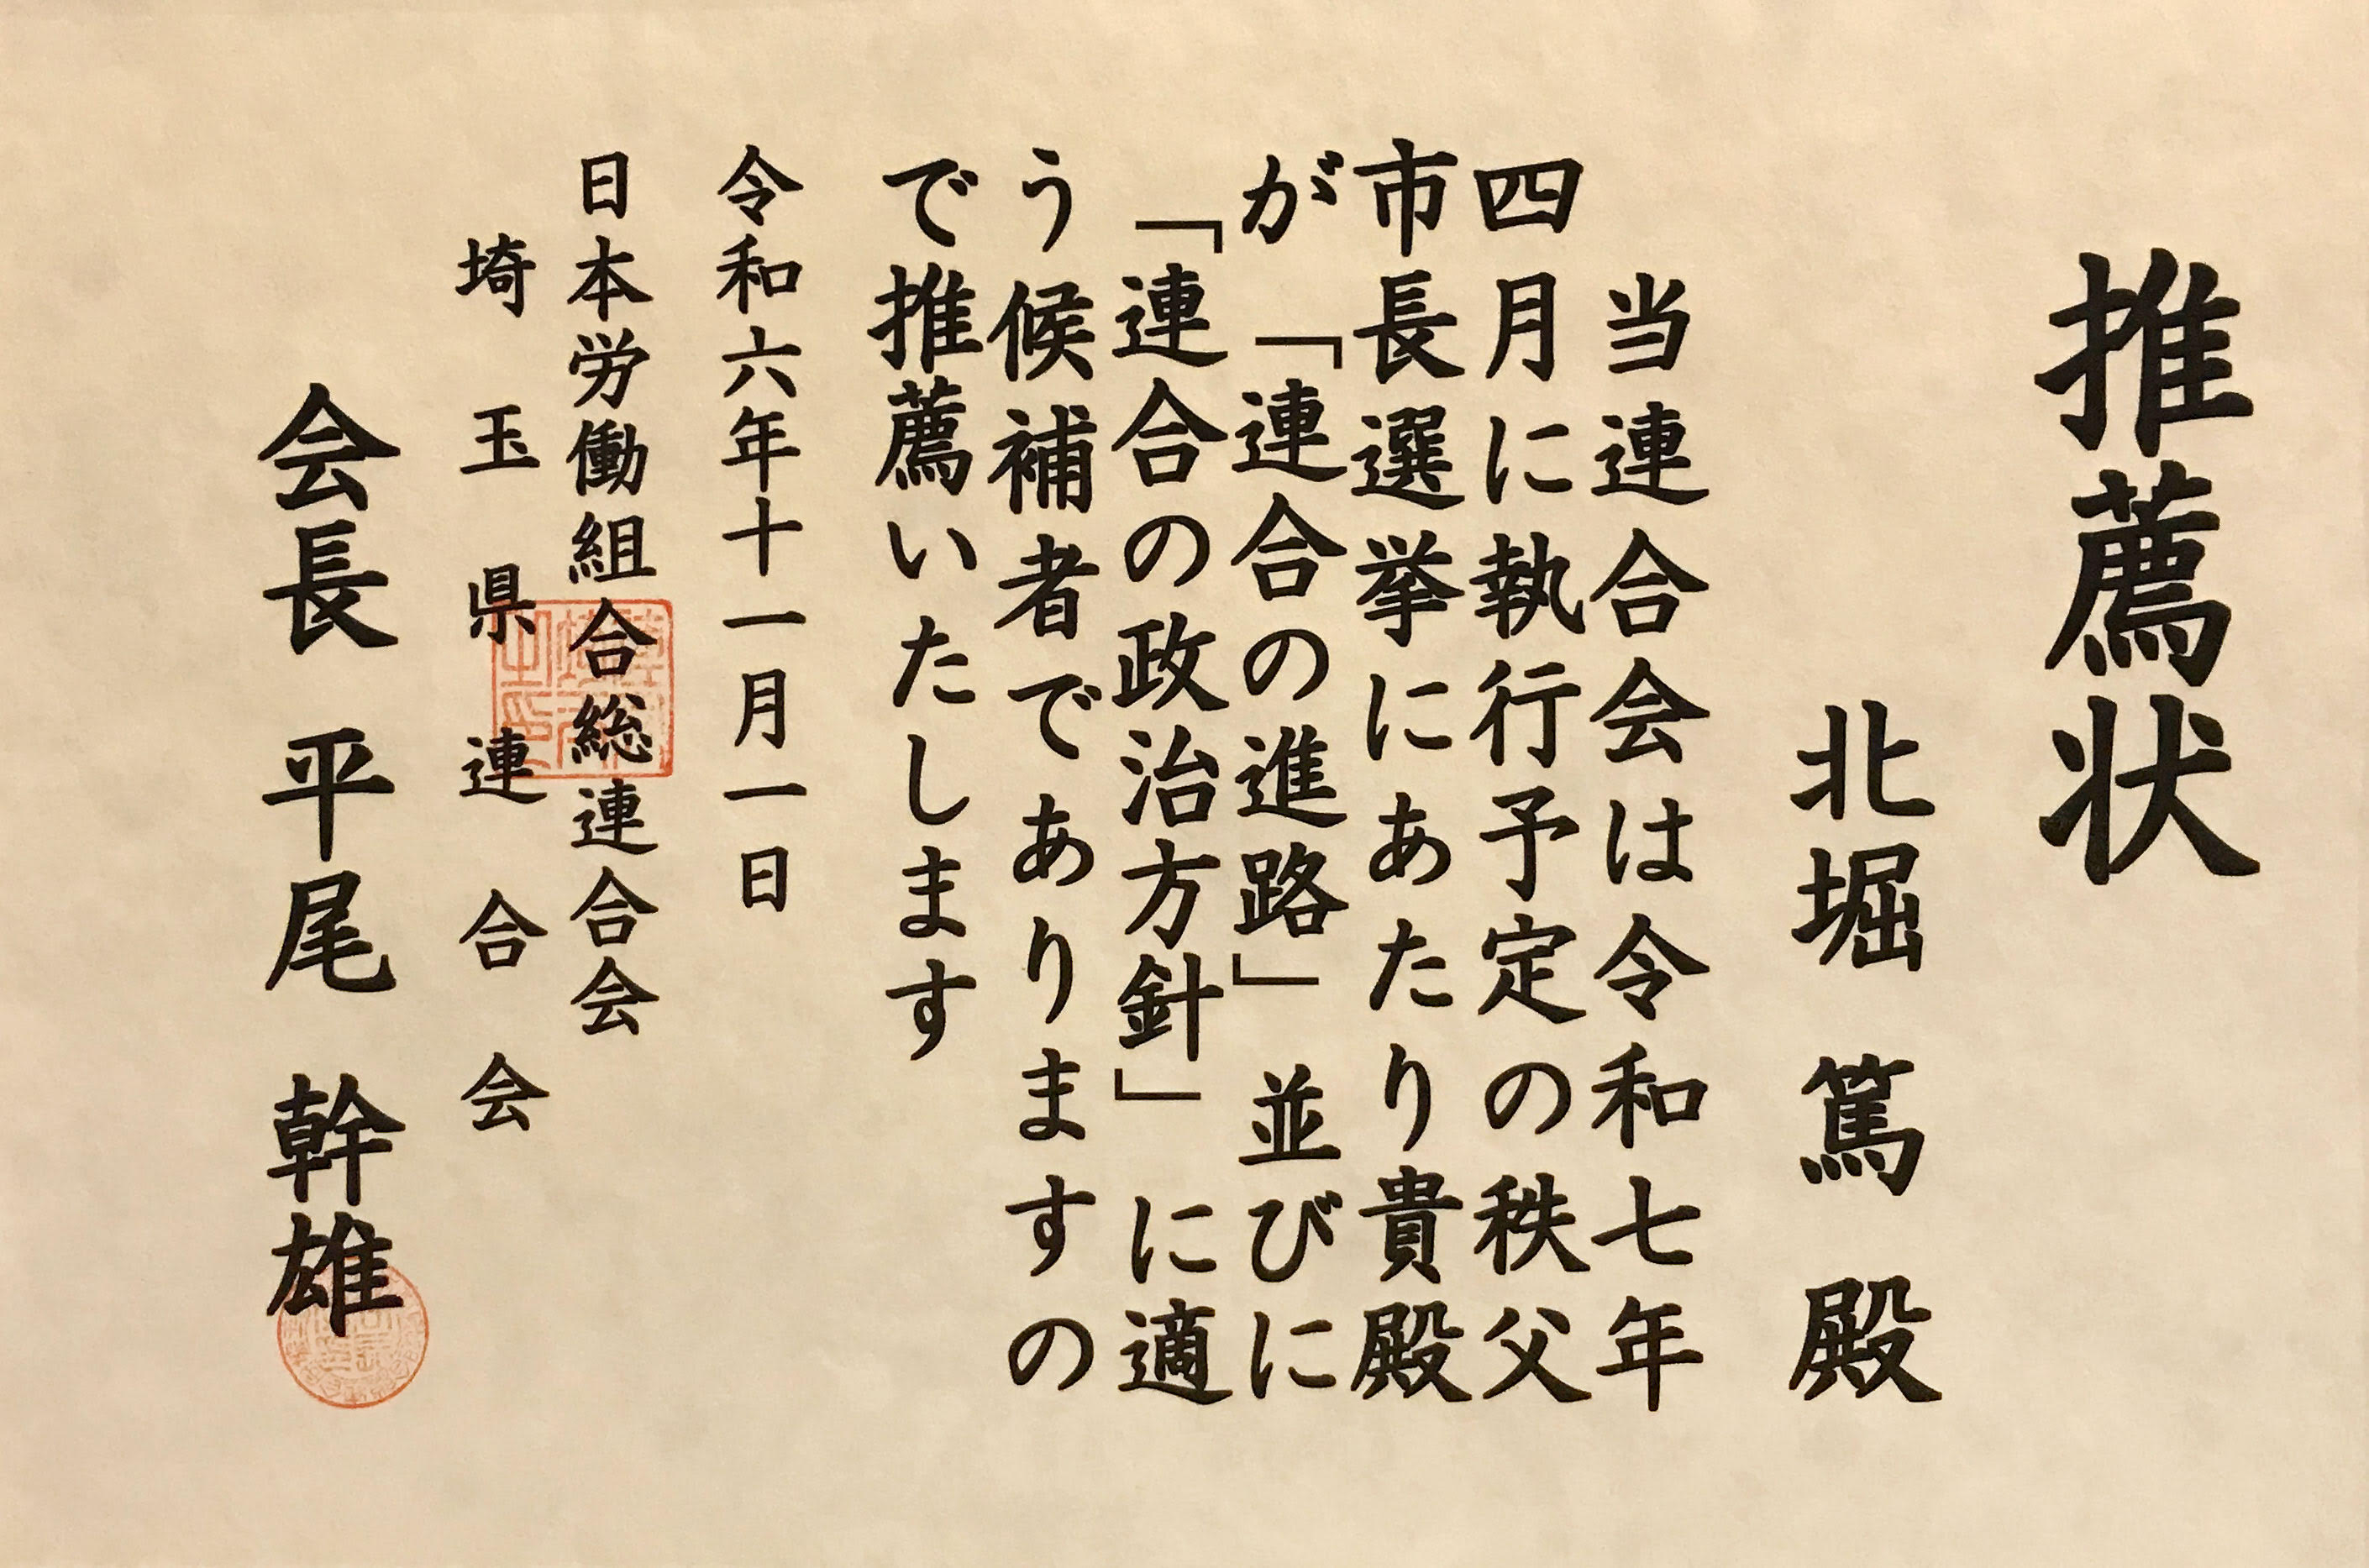 推薦状
北堀 篤 殿
当連合会は令和七年
四月に執行予定の秩父
市長選挙にあたり貴殿
が「連合の進路」並びに
「連合の政治方針」に適
う候補者でありますの
で推薦いたします
令和六年十一月一日
日本労働組合総連合会
埼玉県連合会
会長 平尾 幹雄